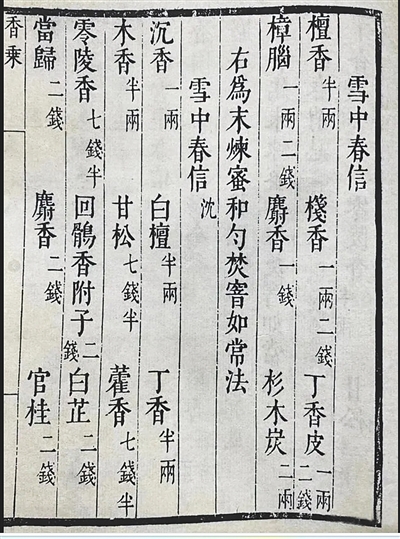 雪中春信
檀香半兩 棧香一兩二錢 丁香皮一兩二錢
樟腦一兩二錢 麝香一錢 杉木炭二兩
右爲末煉蜜和勻焚窨如常法
雪中春信沈
沉香一兩 白檀半兩 丁香半兩
木香半兩 甘松七錢半 藿香七錢半
零陵香七錢半 回鶻香附子二錢 白芷二錢
當歸二錢 麝香二錢 官桂二錢
香乘